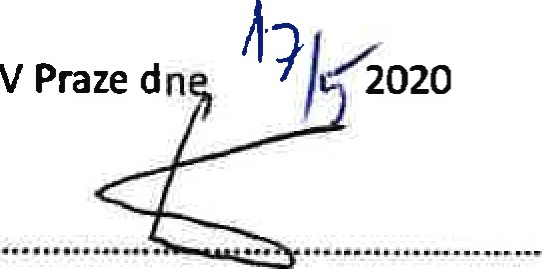 V Praze dne 17/5 2020